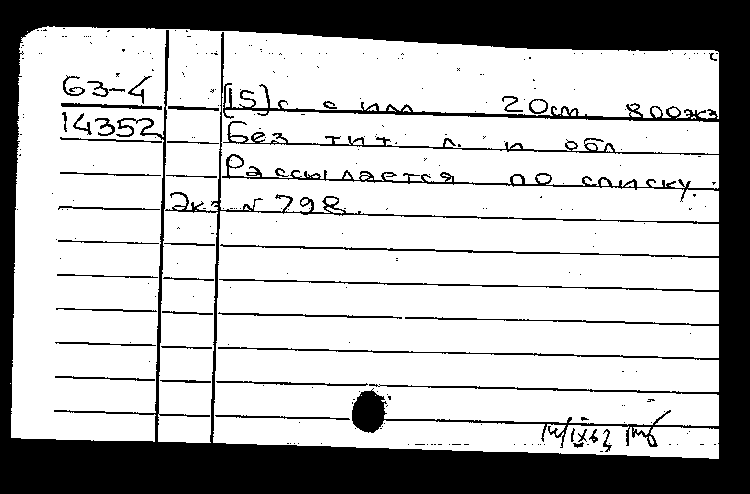 63-4 [15]с. с илл. 20 см. 800 экз
14352 Без тит. л. и обл.
Рассылается по списку.
Экз № 798.
14/IX 63